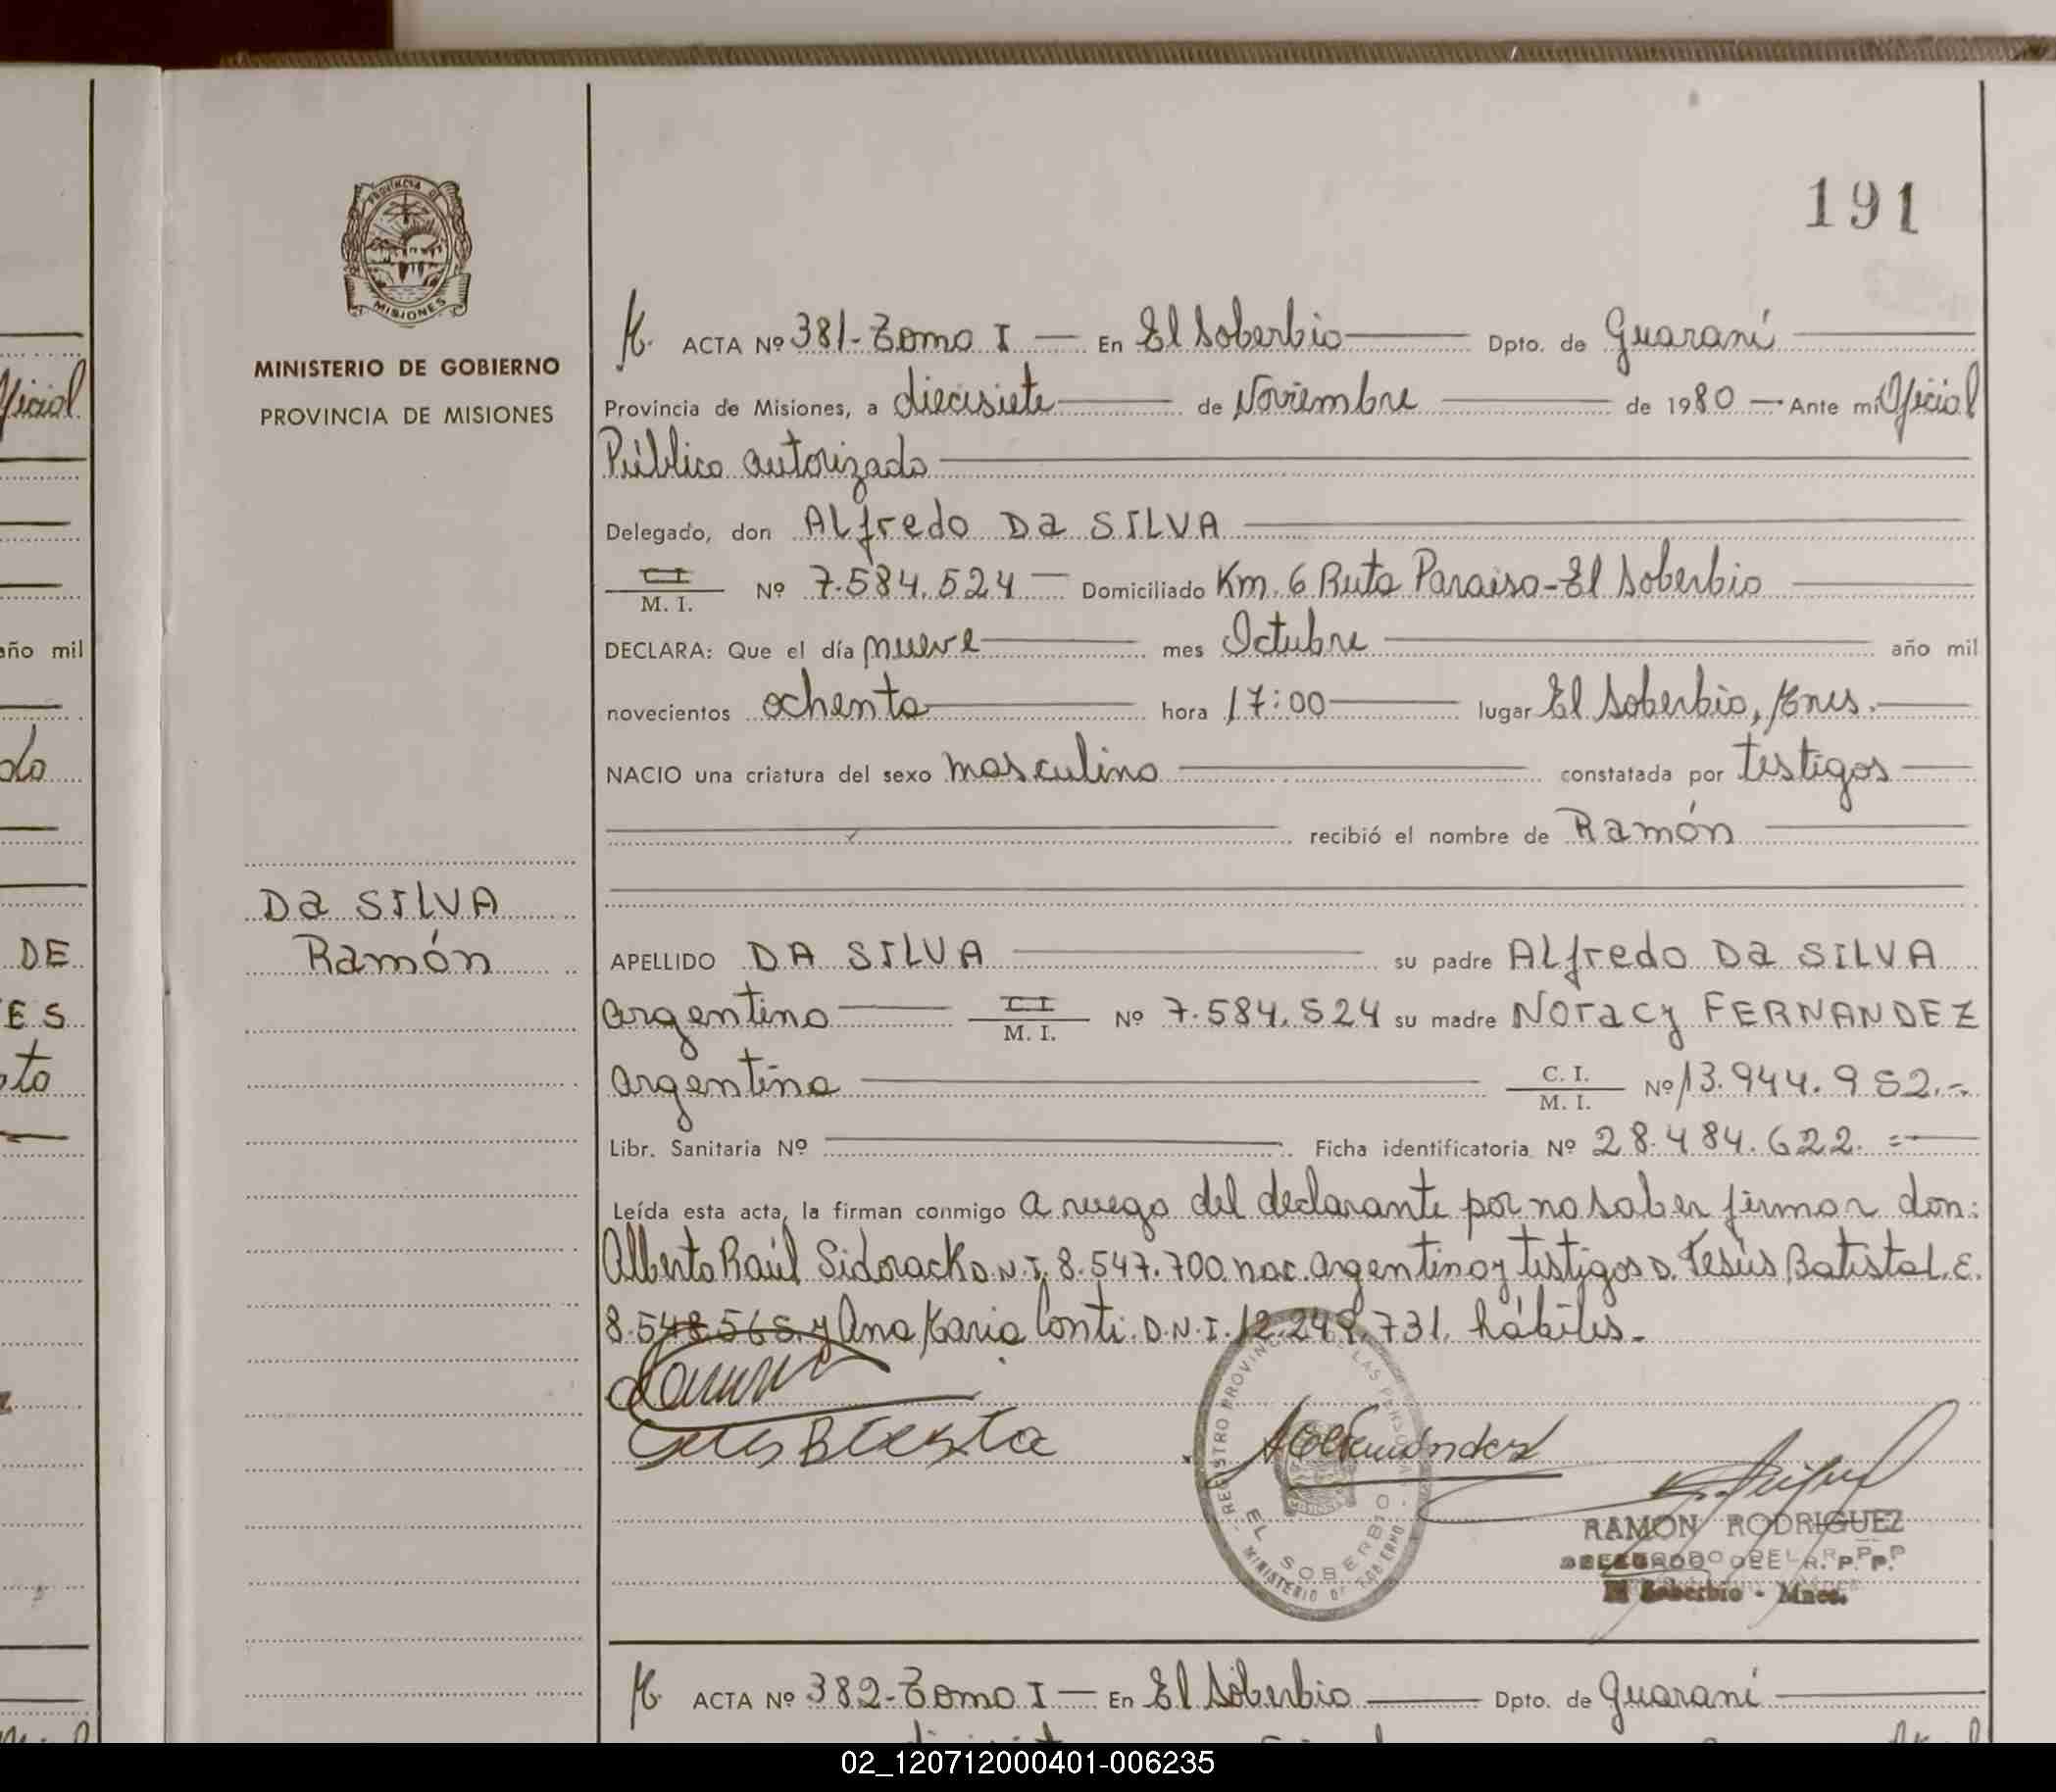 191
PROVINCIA DE
MISIONES
MINISTERIO DE GOBIERNO
PROVINCIA DE MISIONES
M. ACTA Nº 381-Tomo I — En El Soberbio Dpto. de Guaraní
Provincia de Misiones, a diecisiete de Noviembre de 1980 — Ante mi Oficial
Público autorizado
Delegado, don Alfredo Da SILVA
C I
M. I. Nº 7.584.524 Domiciliado Km. 6 Ruta Paraiso-El Soberbio
DECLARA: Que el día nueve mes Octubre año mil
novecientos ochenta hora 17:00 lugar El Soberbio, Mnes.
NACIO una criatura del sexo masculino constatada por testigos
recibió el nombre de Ramón
Da SILVA
Ramón
APELLIDO DA SILVA su padre Alfredo Da SILVA
argentino C I M. I. Nº 7.584.524 su madre Noracy FERNANDEZ
argentina C. I. M. I. Nº 13.944.952.-
Libr. Sanitaria Nº Ficha identificatoria Nº 28.484.622.=
Leída esta acta, la firman conmigo a ruego del declarante por no saber firmar don:
Alberto Raúl Sidorack D.N.I. 8.547.700 nac. argentino y testigos D. Jesús Batista L.E.
8.548.565 y Ana María Conti D.N.I. 12.249.731. hábiles.-
EL SOBERBIO
MINISTERIO DE GOBIERNO
RAMON RODRIGUEZ
El Soberbio - Mnes.
M. ACTA Nº 382-Tomo I — En El Soberbio Dpto. de Guaraní
ficial
año mil
do
DE
ES
to
02_120712000401-006235